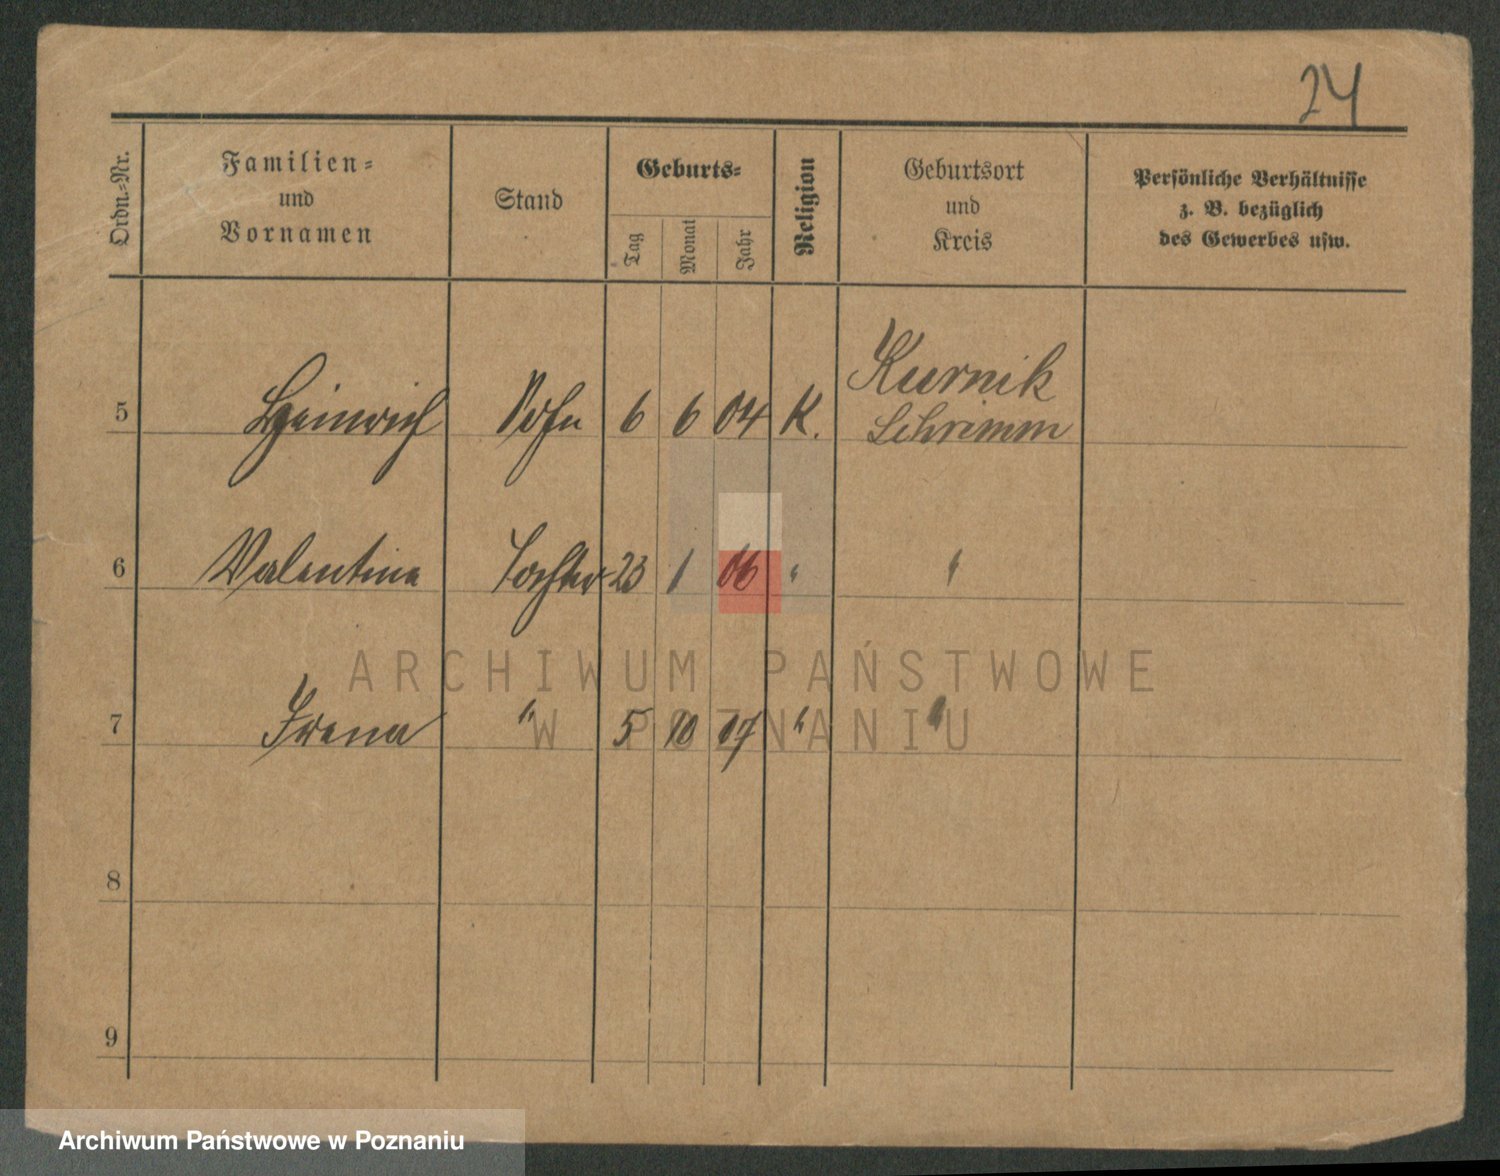 24
Ordn.-Nr.
Familien-
und
Vornamen
Stand
Geburts-
Tag
Monat
Jahr
Religion
Geburtsort
und
Kreis
Persönliche Verhältnisse
z. B. bezüglich
des Gewerbes usw.
Kurnik
5 Heinrich Sohn 6 6 04 K. Schrimm
6 Valentine Tochter 23 1 06 " "
ARCHIWUM PAŃSTWOWE
W POZNANIU
7 Irena " 5 10 07 " "
8
9
Archiwum Państwowe w Poznaniu